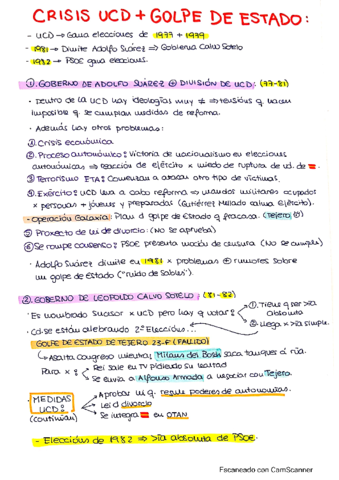 CRISIS UCD + GOLPE DE ESTADO:
- UCD → Gana eleccions de 1977 + 1979
- 1981 → Dimite Adolfo Suárez ⇒ Goberna Calvo Sotelo
- 1982 → PSOE gana eleccions.
① GOBERNO DE ADOLFO SUÁREZ ⊕ DIVISIÓN DE UCD: (77-81)
• Dentro de la UCD hay ideologías muy ≠ ⇒ tensións q hacen
imposible q se cumplan medidas de reforma.
• Además hay otros problemas:
① Crisis económica
② Proceso autonómico: Victoria de nacionalismo en eleccions
autonómicas ⇒ reacción de ejército x miedo de ruptura de ud. de
③ Terrorismo ETA: Comenzan a atacar otro tipo de víctimas.
④ Exército: UCD leva a cabo reforma ⇒ mandos militares ocupados
x persoas + jóvenes y preparadas (Gutiérrez Mellado calma Ejército).
- Operación Galaxia: Plan d golpe de Estado q fracasa. (Tejero)
⑤ Proxecto de lei de divorcio: (No se aprueba)
⑥ Se rompe consenso: PSOE presenta moción de censura (No se cumple)
• Adolfo Suárez dimite en 1981 x problemas + rumores sobre
un golpe de Estado ("ruido de sables").
② GOBERNO DE LEOPOLDO CALVO SOTELO: (81-82)
• Es nombrado sucesor x UCD pero hay q votar:
① Tiene q ser >ía
absoluta
② Llega x >ía simple.
• Cd. se están celebrando 2ª Eleccións...
GOLPE DE ESTADO DE TEJERO 23-F (FALLIDO)
↳ Asalta congreso mientras Milans del Bosch saca tanques á rúa.
Para x:
Rei sale en TV pidiendo su lealtad
Se envía a Alfonso Armada a negociar con Tejero.
• MEDIDAS
UCD:
(continúan)
Aprobar ley q. regule poderes de autonomías.
Lei d divorcio
Se integra en OTAN
- Eleccións de 1982 ⇒ >ía absoluta de PSOE.
Escaneado con CamScanner